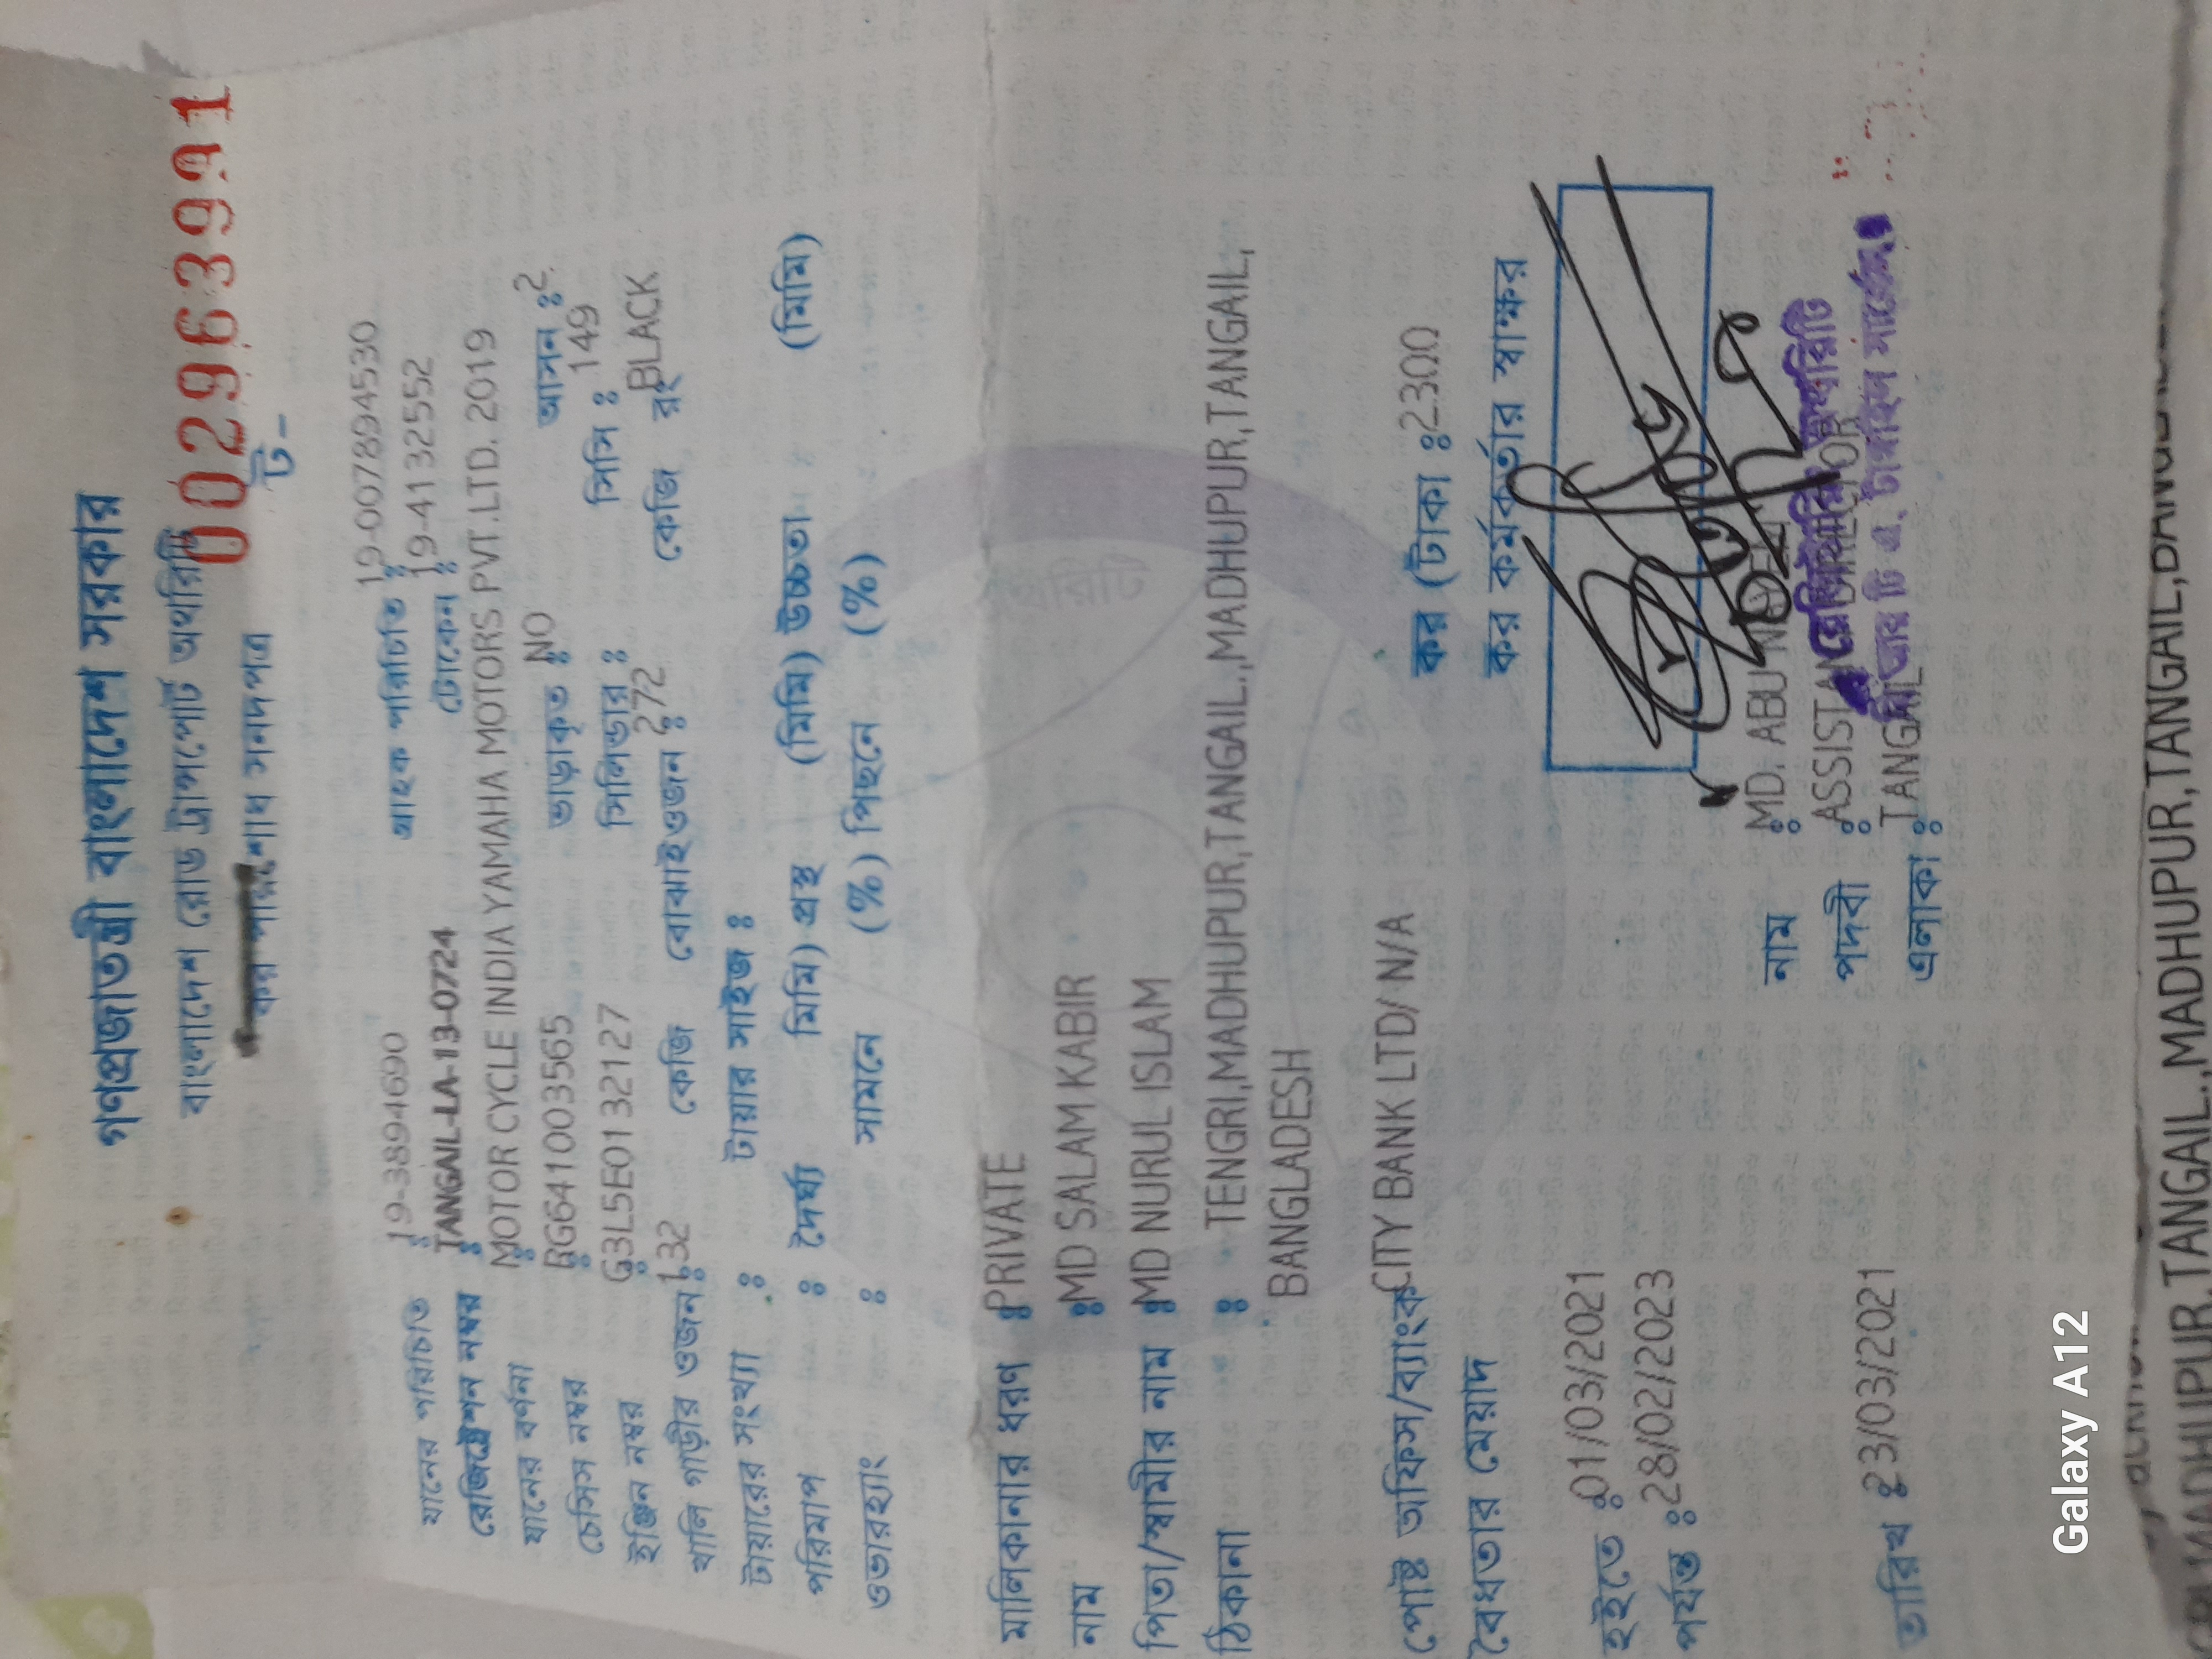 গণপ্রজাতন্ত্রী বাংলাদেশ সরকার
বাংলাদেশ রোড ট্রান্সপোর্ট অথরিটি
সনদপত্র
ট- 0029639
যানের পরিচিতি : 19-3894690 গ্রাহক পরিচিতি : 19-007894530
রেজিস্ট্রেশন নম্বর : TANGAIL-LA-13-0724 টোকেন : 19-4132552
যানের বর্ণনা : MOTOR CYCLE INDIA YAMAHA MOTORS PVT.LTD. 2019
চেসিস নম্বর : RG641003565 ভাড়াকৃত : NO আসন : 2
ইঞ্জিন নম্বর : G3L5E0132127 সিলিন্ডার : সিসি : 149
খালি গাড়ীর ওজন : 132 কেজি বোঝাইওজন : 272 কেজি রং BLACK
টায়ারের সংখ্যা : টায়ার সাইজ :
পরিমাপ : দৈর্ঘ্য মিমি) প্রস্থ (মিমি) উচ্চতা (মিমি)
ওভারহ্যাং : সামনে (%) পিছনে (%)
মালিকানার ধরণ : PRIVATE
নাম : MD SALAM KABIR
পিতা/স্বামীর নাম : MD NURUL ISLAM
ঠিকানা : TENGRI,MADHUPUR,TANGAIL,MADHUPUR,TANGAIL.,MADHUPUR,TANGAIL,
BANGLADESH
পোষ্ট অফিস/ব্যাংক CITY BANK LTD/ N/A
বৈধতার মেয়াদ কর (টাকা : 2300
কর কর্মকর্তার স্বাক্ষর
হইতে : 01/03/2021
পর্যন্ত : 28/02/2023
নাম : MD. ABU
পদবী : ASSISTANT DIRECTOR
এলাকা : TANGAIL
তারিখ : 23/03/2021
Galaxy A12
MADHUPUR,TANGAIL.,MADHUPUR,TANGAIL,